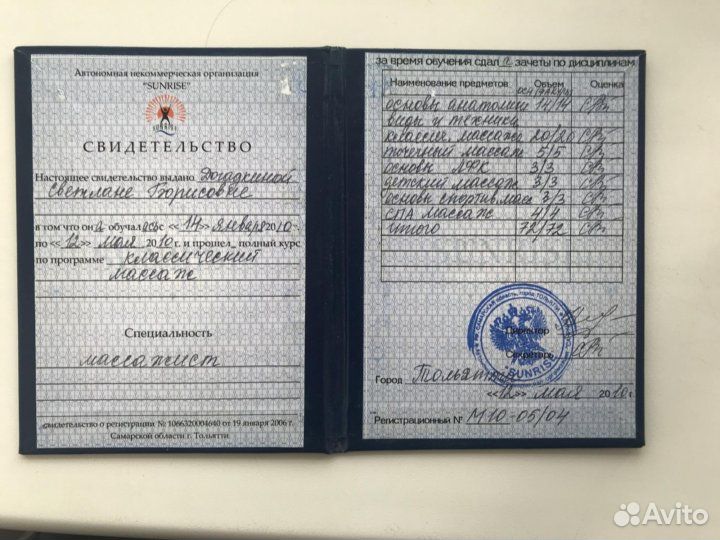 Автономная некоммерческая организация
"SUNRISE"
SUNRISE
СВИДЕТЕЛЬСТВО
Настоящее свидетельство выдано Догадкиной
Светлане Борисовне
в том что она обучалась с «14» января 2010 г.
по «12» мая 2010 г. и прошел полный курс
по программе классический
массаж
Специальность
массажист
свидетельство о регистрации № 1066320004640 от 19 января 2006 г.
Самарской области г. Тольятти
за время обучения сдала зачеты по дисциплинам
Наименование предметов Объем Оценка
основы анатомии 14/14
виды и техники
классич массажа 20/20
точечный массаж 5/5
основы ЛФК 3/3
детский массаж 3/3
основы спортив. масс 3/3
СПА массаж 4/4
итого 72/72
Директор
Секретарь
SUNRISE
Город Тольятти
«12» мая 2010 г.
Регистрационный № М10-05/04
Avito